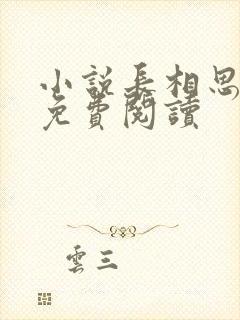 小說長相思
免費閱讀
雲三